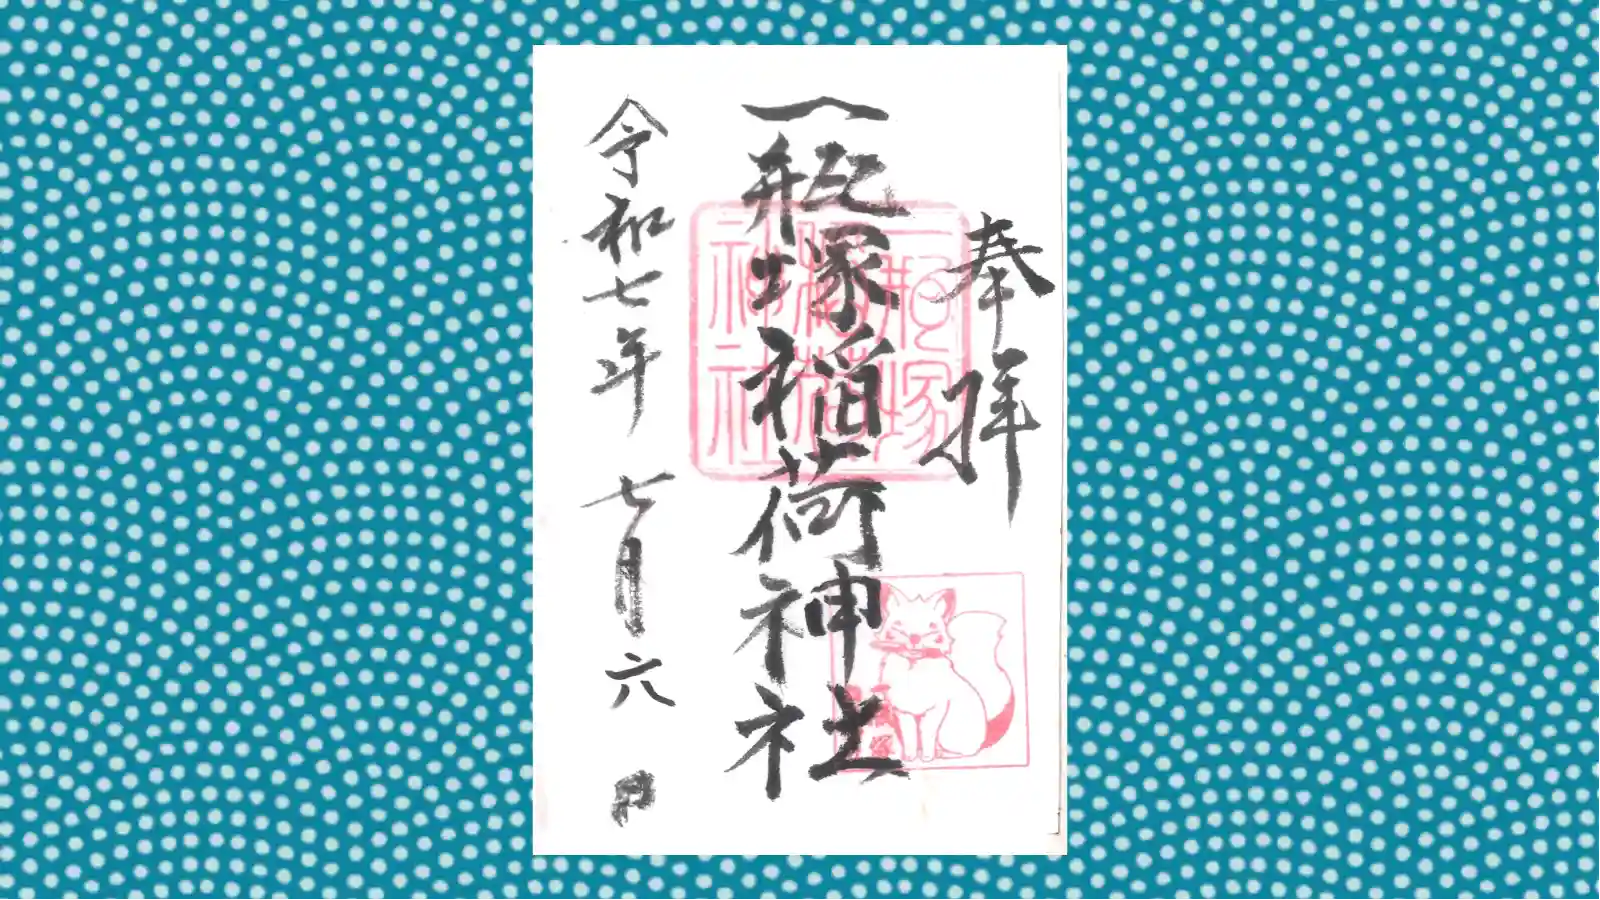 奉拝
一瓶塚稲荷神社
一瓶塚稲荷神社
令和七年七月六日